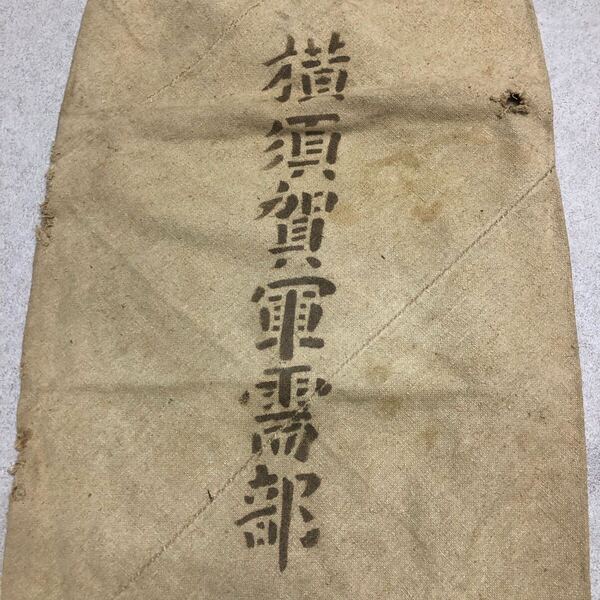 横須賀軍需部